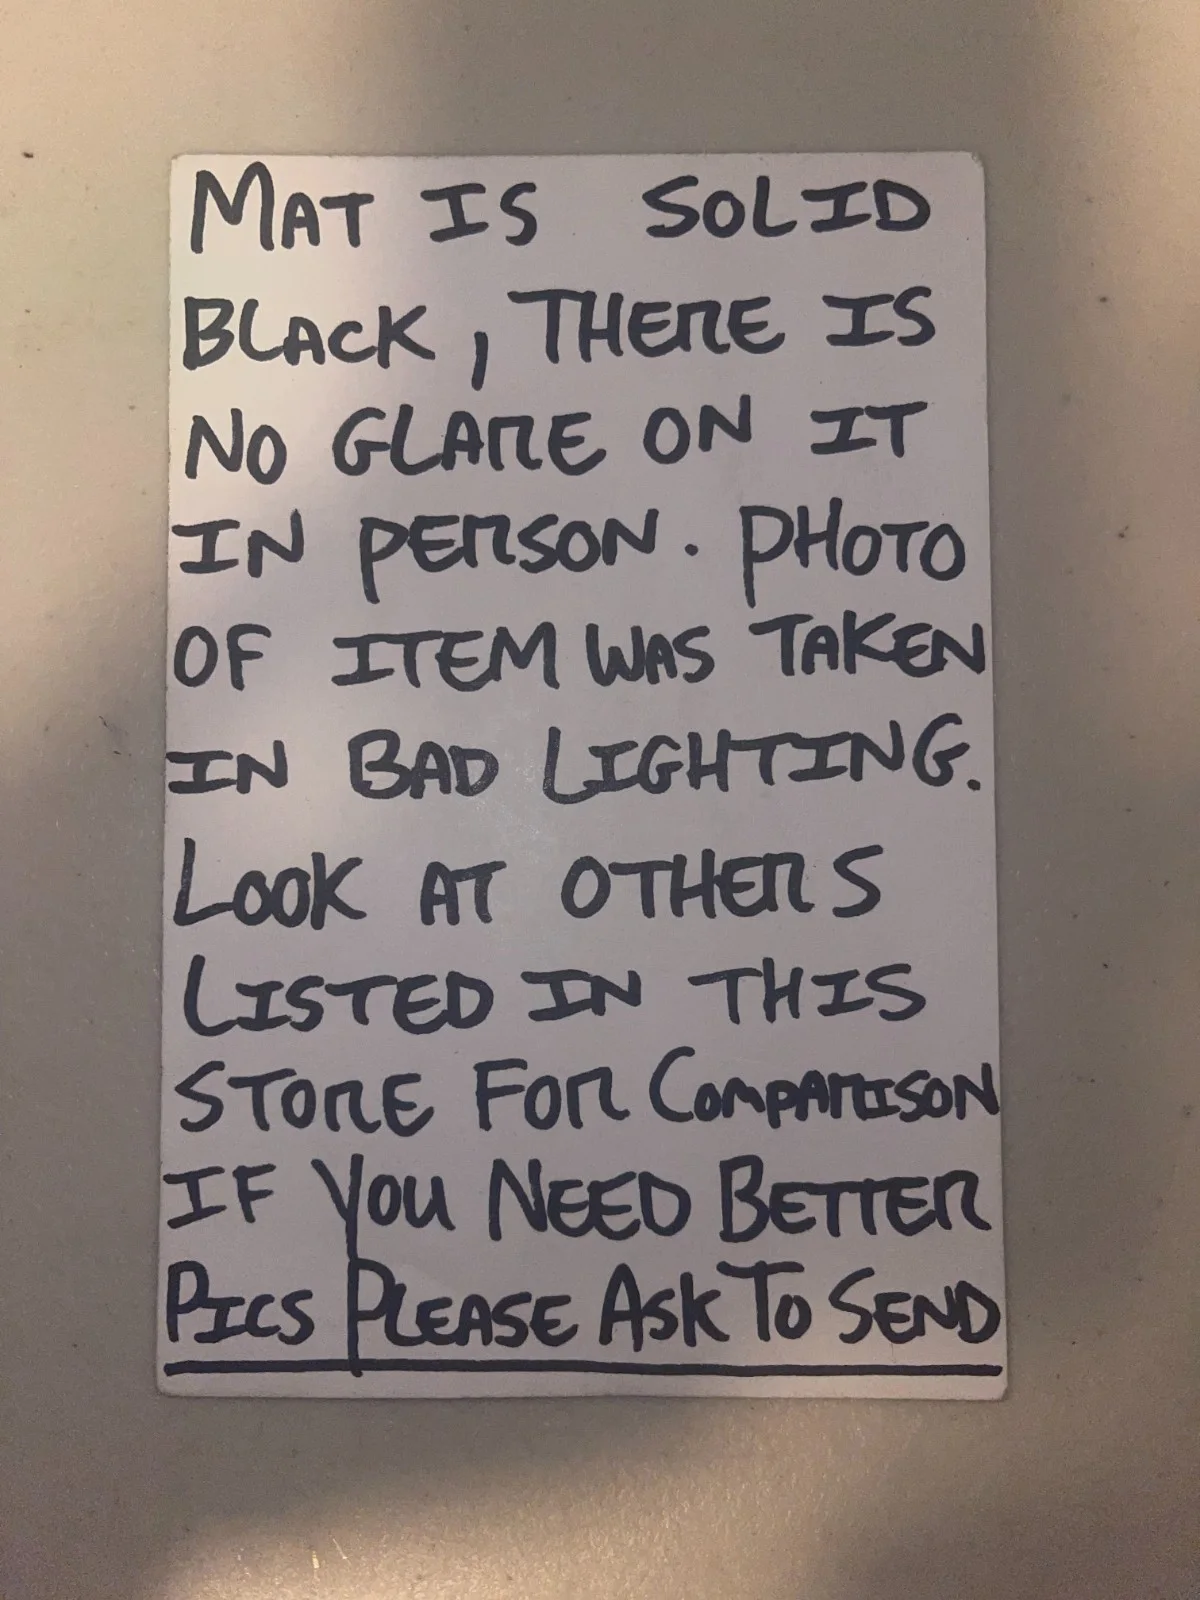 MAT IS SOLID
BLACK, THERE IS
NO GLARE ON IT
IN PERSON. PHOTO
OF ITEM WAS TAKEN
IN BAD LIGHTING.
LOOK AT OTHERS
LISTED IN THIS
STORE FOR COMPARISON
IF YOU NEED BETTER
PICS PLEASE ASK TO SEND